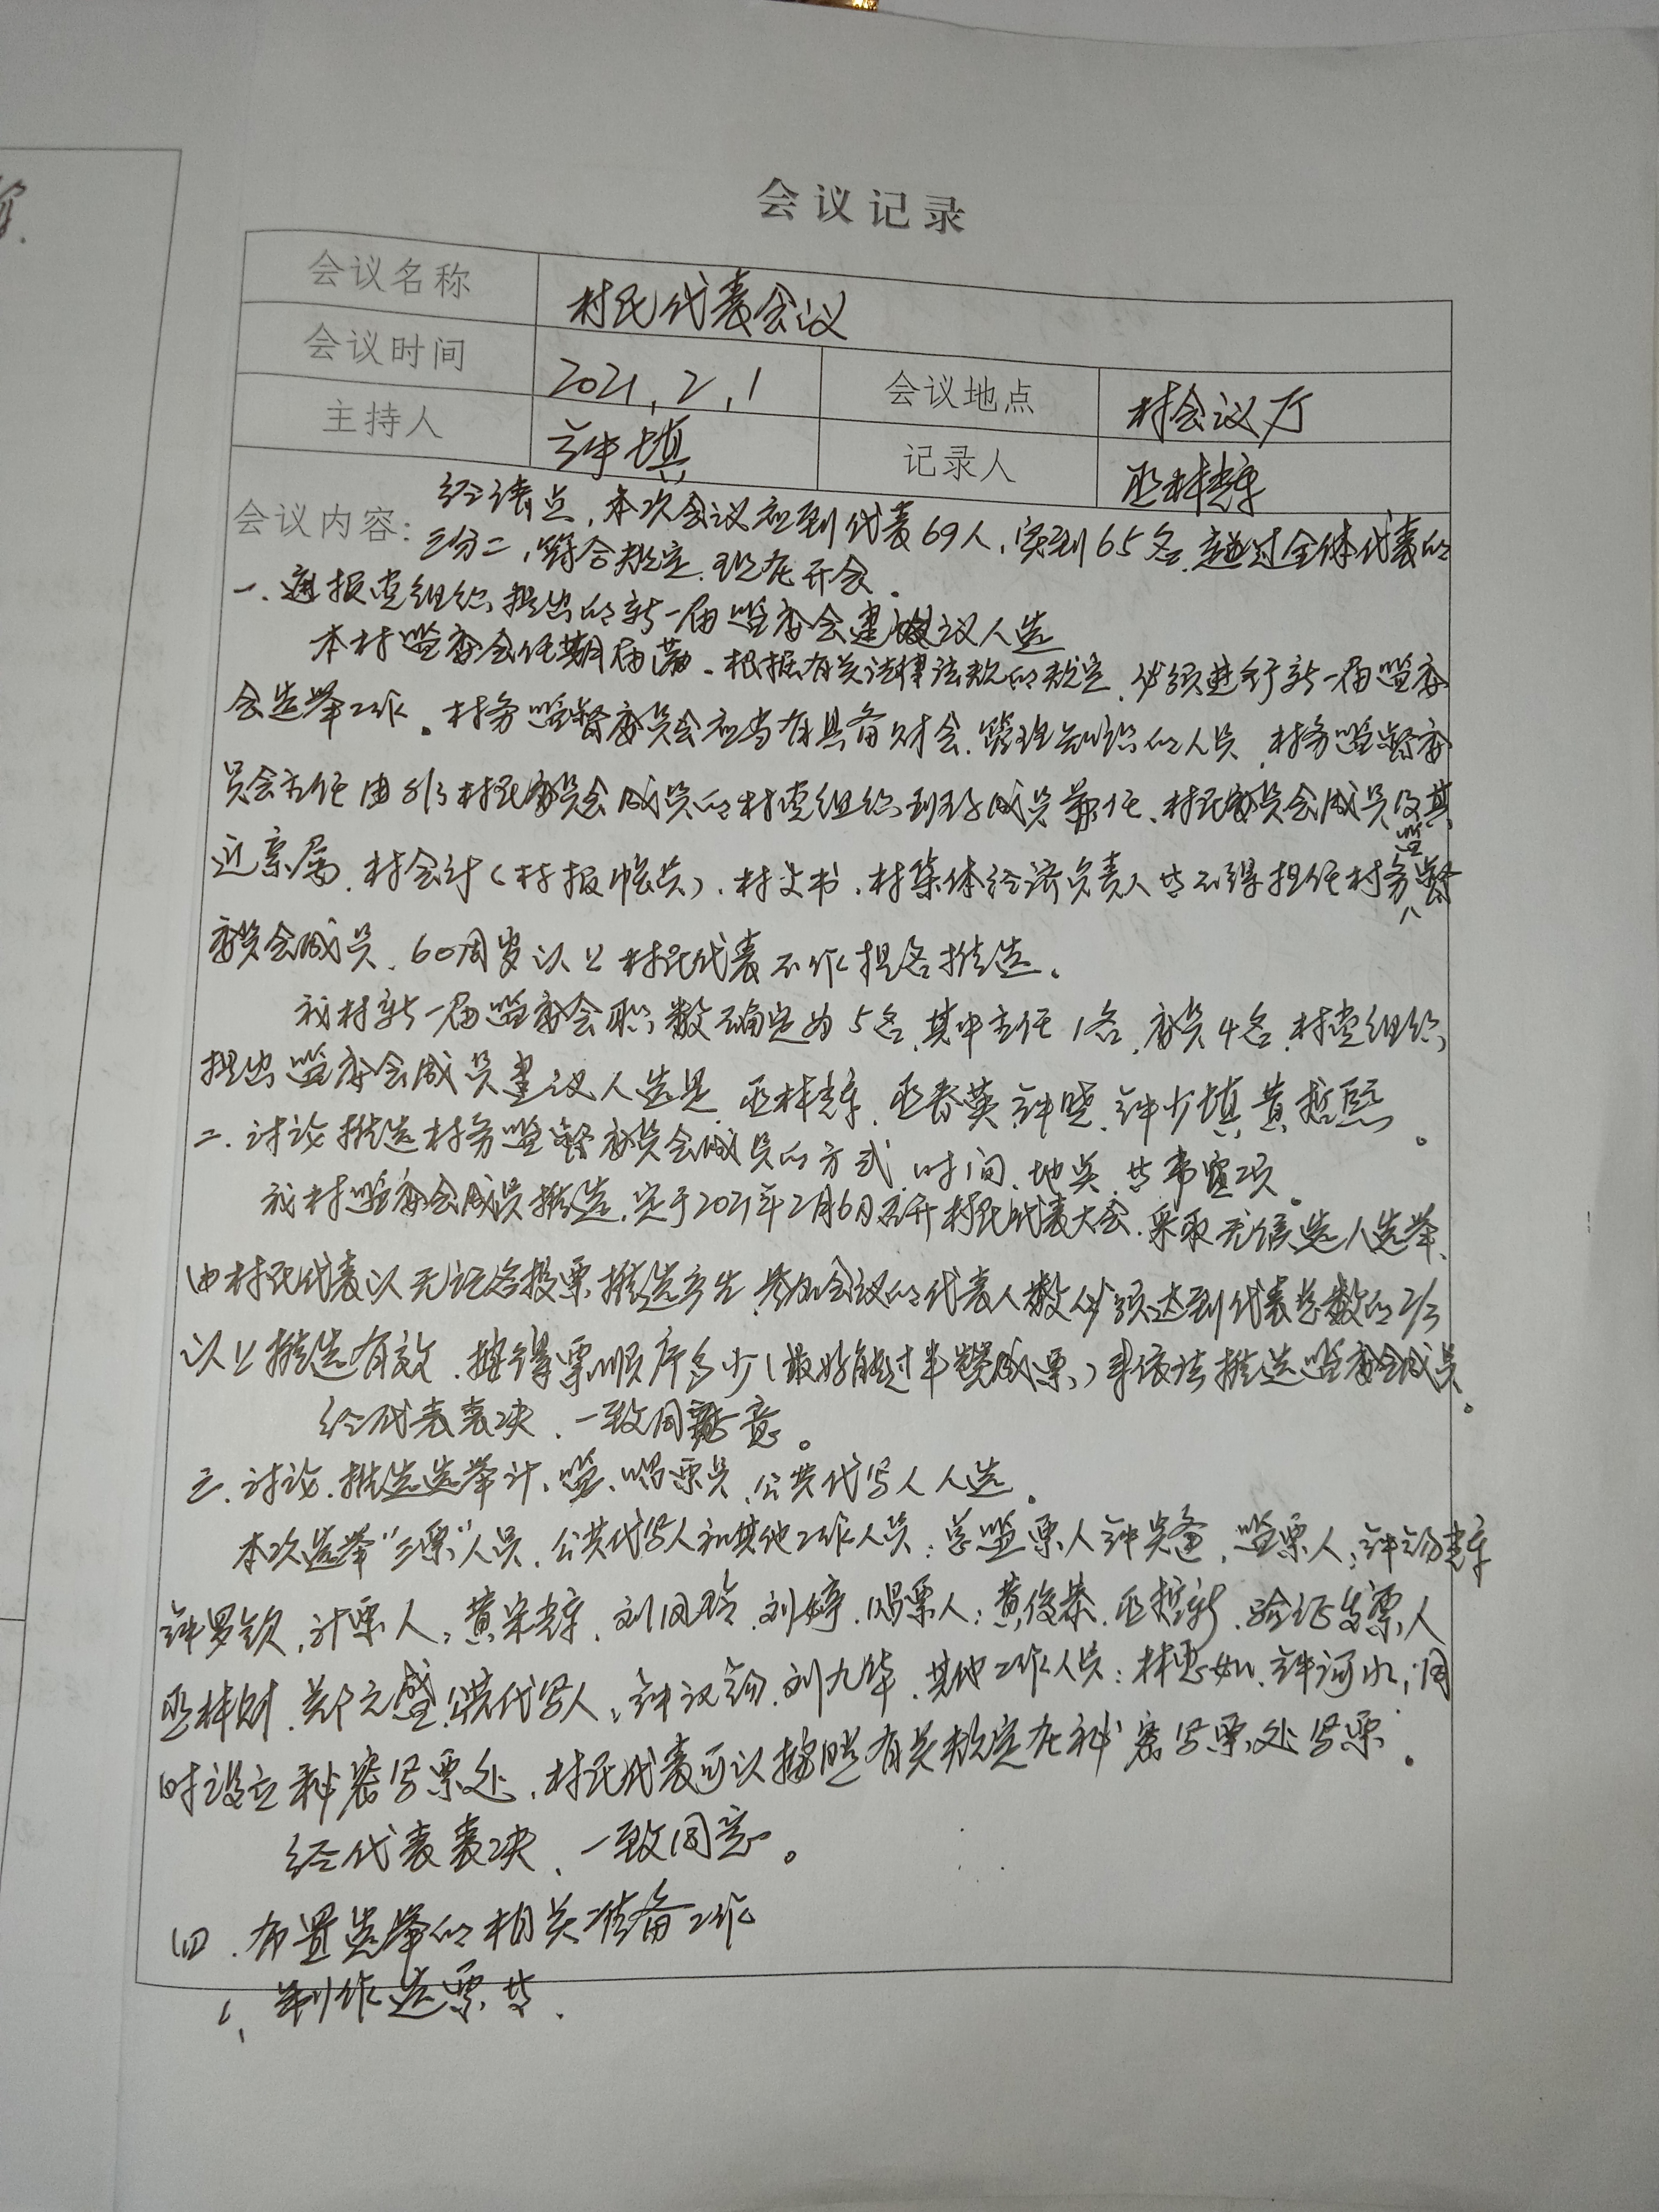 会议记录
会议名称 村民代表会议
会议时间 2021.2.1 会议地点 村会议厅
主持人 钟填 记录人 巫林辉
会议内容: 经清点,本次会议应到代表69人,实到65名,超过全体代表的
三分二,符合规定,现在开会。
一、通报党组织提出的新一届监委会建议人选
本村监委会任期届满。根据有关法律法规的规定,必须进行新一届监委
会选举工作。村务监督委员会应当有具备财会、管理知识的人员,村务监督委
员会主任由非村民委员会成员的村党组织班子成员兼任、村民委员会成员及其
近亲属、村会计(村报账员)、村文书、村集体经济负责人等不得担任村务监督
委员会成员、60周岁以上村民代表不作提名推选。
我村新一届监委会职数确定为5名,其中主任1名,委员4名,村党组织
提出监委会成员建议人选是 巫林辉、巫春英、钟晓、钟少填、黄哲熙。
二、讨论推选村务监督委员会成员的方式、时间、地点、等事宜项。
我村监委会成员推选,定于2021年2月6日召开村民代表大会,采取无候选人选举,
由村民代表以无记名投票推选产生,参加会议的代表人数必须达到代表总数的2/3
以上推选有效,按得票顺序多少(最好能过半赞成票)来依法推选监委会成员。
经代表表决、一致同意。
三、讨论、推选选举计、监、唱票员、公共代写人人选。
本次选举“三票”人员、公共代写人和其他工作人员:总监票人钟 监票人:钟 辉
钟罗钦,计票人:黄宋辉、刘凤玲、刘婷,唱票人:黄俊恭、巫哲新、验证发票人
巫林财、郑元盛,公共代写人:钟汉 刘九华、其他工作人员:林惠如、钟河水;同
时设立秘密写票处,村民代表可以按照有关规定在秘密写票处写票。
经代表表决、一致同意。
四、布置选举的相关准备工作
1、制作选票等.